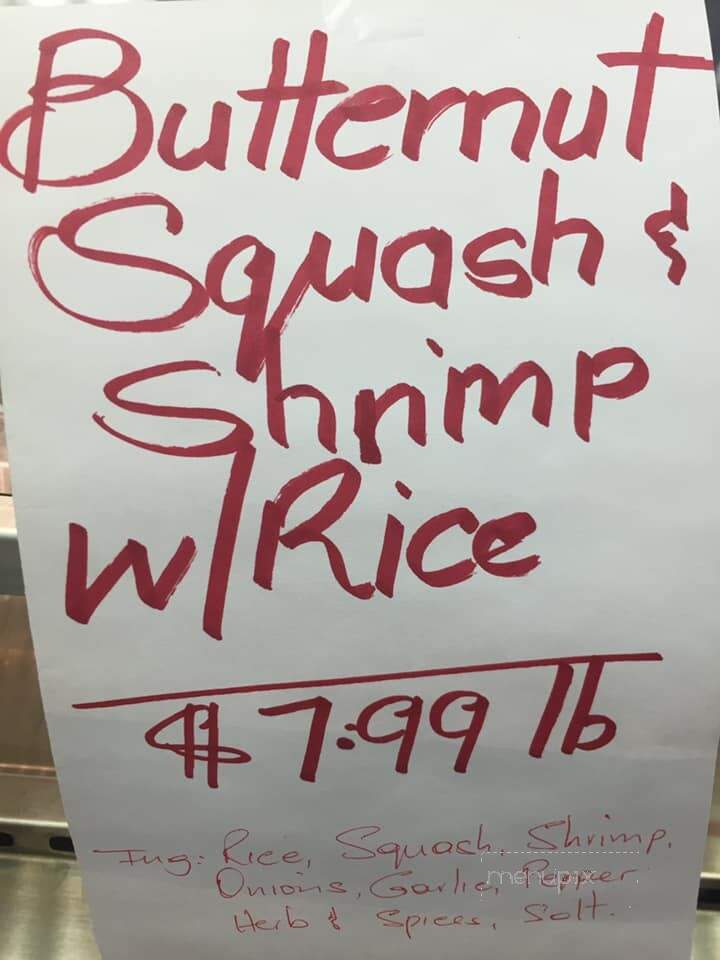 Butternut
Squash &
Shrimp
w/Rice
$7.99 lb
Ing: Rice, Squash, Shrimp,
Onions, Garlic, Pepper
Herb & Spices, Salt.
menupix